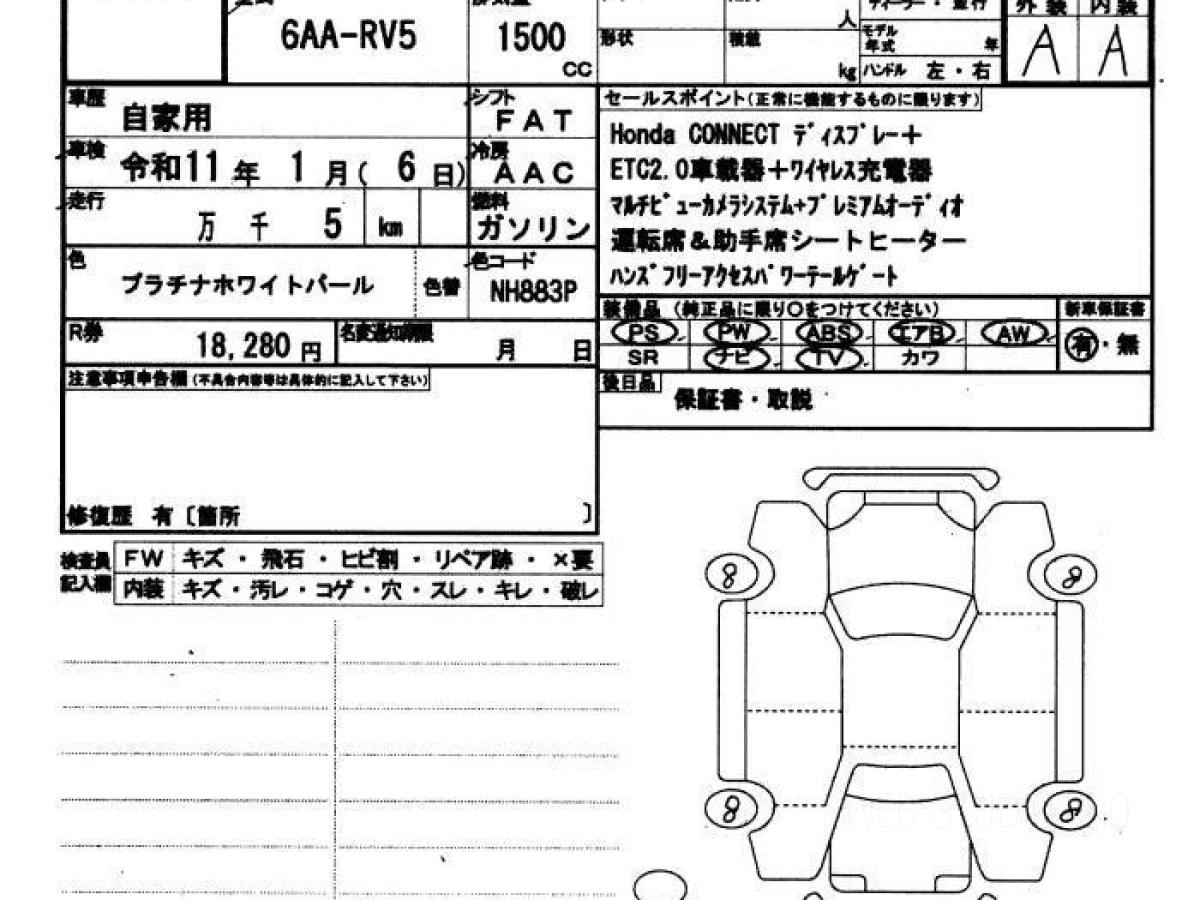 6AA-RV5
1500
CC
人
形状
積載
kg
モデル
年式
年
ハンドル 左・右
外装 内装
A A
車歴
自家用
シフト
FAT
車検
令和11年 1月( 6日)
冷房
AAC
走行
万 千 5 km
燃料
ガソリン
色
プラチナホワイトパール
色替
色コード
NH883P
R券
18,280 円
名変通知期限
月 日
注意事項申告欄(不具合内容等は具体的に記入して下さい)
修復歴 有〔箇所 〕
セールスポイント(正常に機能するものに限ります)
Honda CONNECT ディスプレー+
ETC2.0車載器+ワイヤレス充電器
マルチビューカメラシステム+プレミアムオーディオ
運転席&助手席シートヒーター
ハンズフリーアクセスパワーテールゲート
装備品 (純正品に限り○をつけてください)
新車保証書
PS PW ABS エアB AW
有・無
SR ナビ TV カワ
後日品
保証書・取説
検査員
記入欄
FW キズ・飛石・ヒビ割・リペア跡・×要
内装 キズ・汚レ・コゲ・穴・スレ・キレ・破レ
8 8
8 8